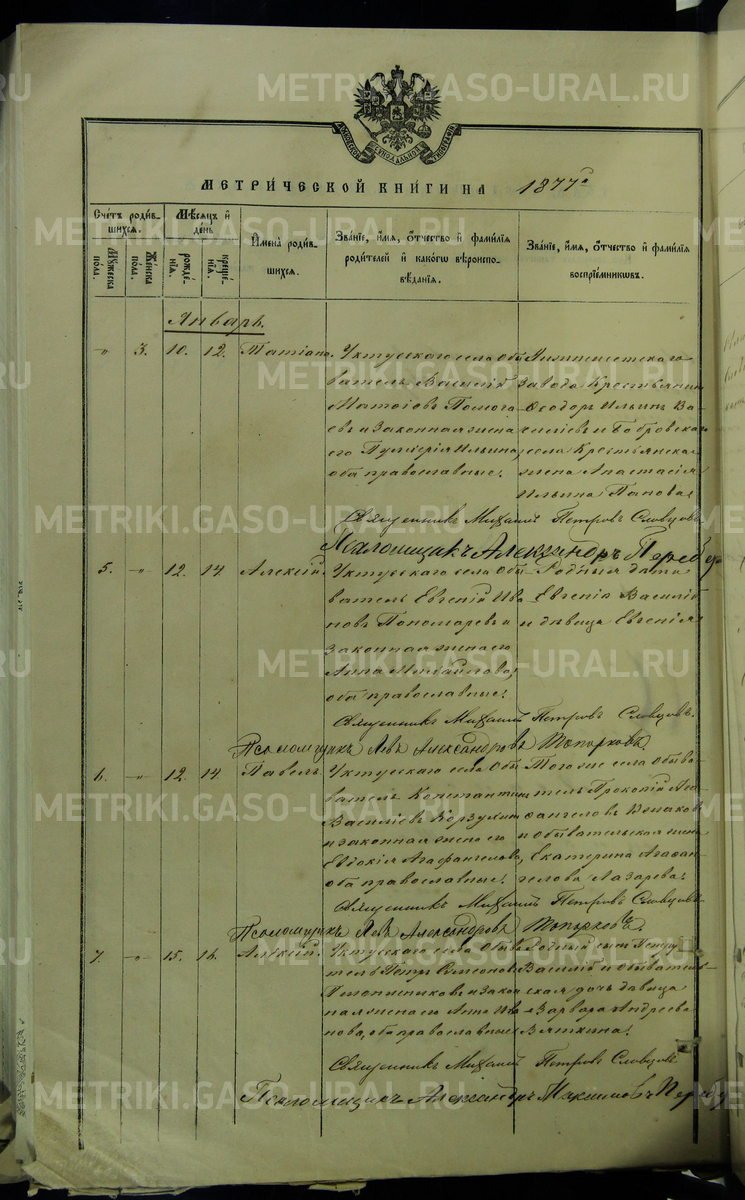 МОСКОВСКОЙ СѴНОДАЛЬНОЙ ТИПОГРАФІИ
МЕТРИ́ЧЕСКОЙ КНИ́ГИ НА 1877 г
Сче́тъ роди́в-
шихся.
Мѣ́сяцъ и҆
де́нь
Му́жеска
по́ла.
Же́нска
по́ла.
рожде́-
нїѧ.
креще́-
нїѧ.
И҆мена̀ роди́в-
шихся.
Зва́нїе, и҆́мѧ, ѻ҆́тчество и҆ фами́лїѧ
роди́телей и҆ како́гѡ вѣроисповѣ́-
данїѧ.
Зва́нїе, и҆́мѧ, ѻ҆́тчество и҆ фами́лїѧ
воспрїе́мникѡвъ.
Январь.
" 3. 10. 12. Татіана. Уктусскаго села Обы-
ватель Василій
Законная жена
его Пулхерія Ильина,
оба православные.
Нижнеисетскаго
завода Крестьянинъ
Ѳеодоръ Ильинъ Ва-
силіевъ и Бобровскаго
села Крестьянская
жена Анастасія
Ильина Попова.
Священникъ Михаилъ Петровъ Словцовъ.
Псаломщикъ Александръ
5. " 12. 14. Алексій. Уктусскаго села Обы-
ватель Евгеній Ива-
новъ Пономаревъ и
Законная жена его
Анна Михайлова,
оба православные.
Родныя дѣти
Евгенія Василій
и дѣвица Евгенія
Священникъ Михаилъ Петровъ Словцовъ.
Псаломщикъ Левъ Александровъ Топорковъ.
6. " 12. 14. Павелъ. Уктусскаго села Обы-
ватель Константинъ
Василіевъ Корзухинъ
и законная жена его
Евдокія Агафангелова,
оба православные.
Того же села обыва-
тель Прокопій Ага-
фангеловъ
и обывательская жена
Екатерина Агафан-
гелова Лазарева.
Священникъ Михаилъ Петровъ Словцовъ.
Псаломщикъ Левъ Александровъ Топорковъ.
7. " 15. 16. Алексій. Уктусскаго села Обыва-
тель Петръ Симеоновъ
и Закон-
ная жена его Анна Ива-
нова, оба православные.
Родный сынъ Петра
Василій и обыватель-
ская дочь дѣвица
Варвара Андреева
Вяткина.
Священникъ Михаилъ Петровъ Словцовъ
Псаломщикъ Александръ Максимовъ
METRIKI.GASO-URAL.RU